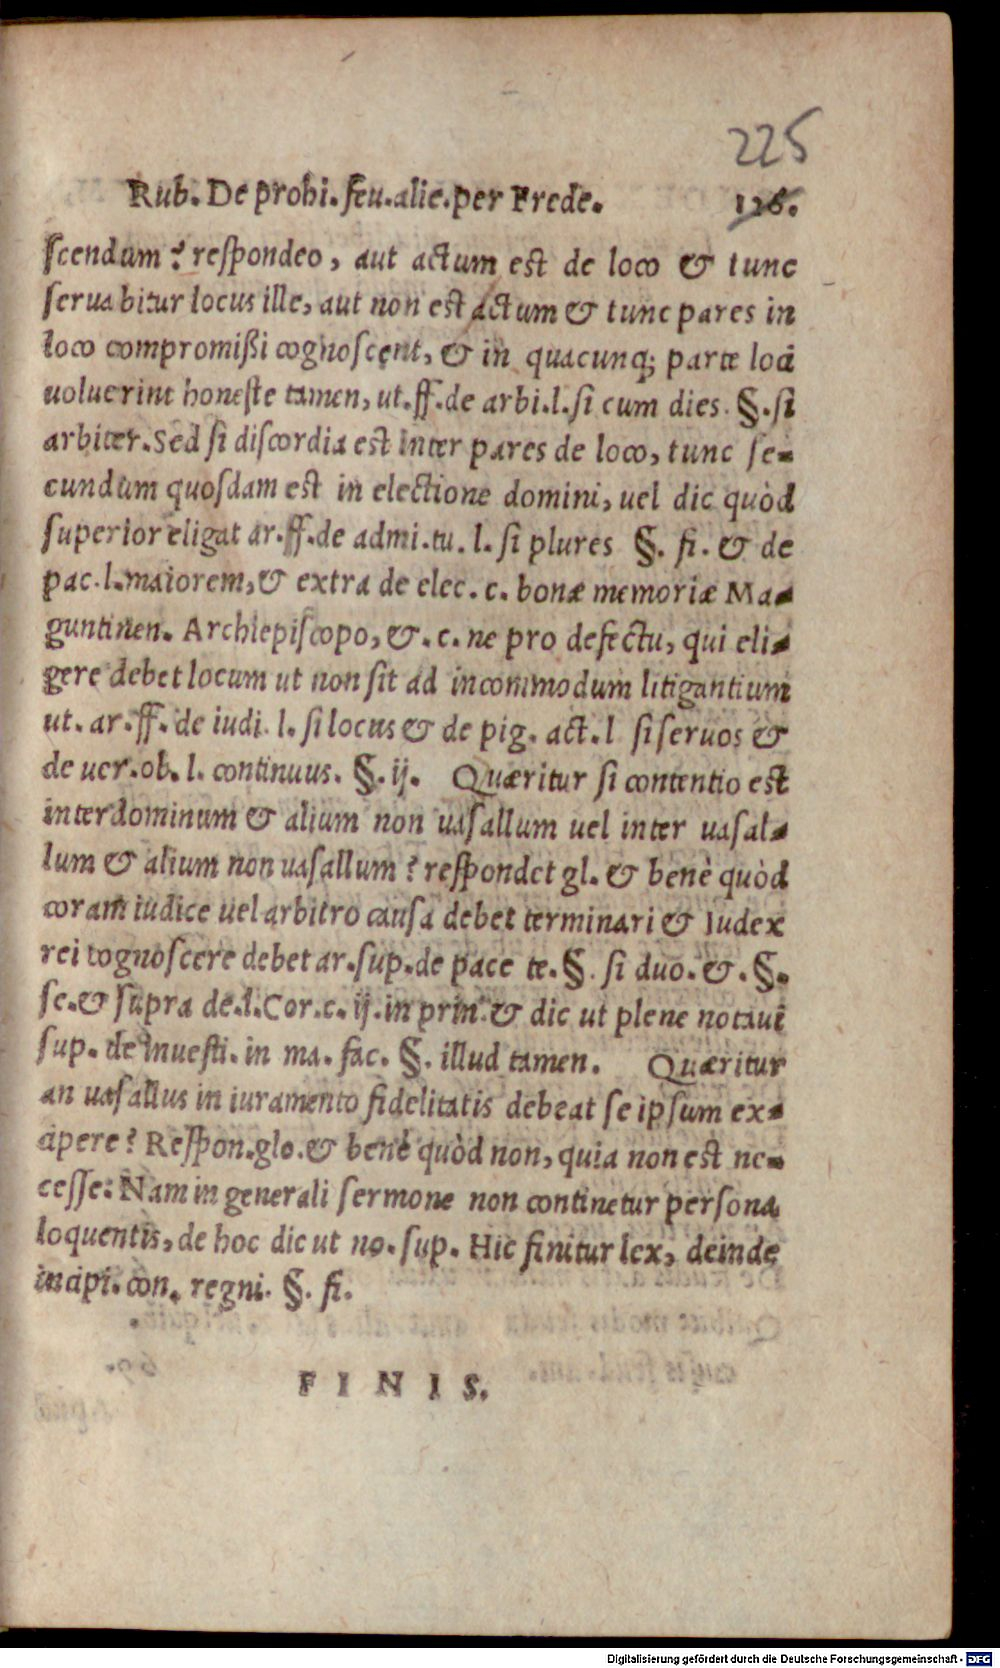 225
Rub. De prohi. feu. alie. per Frede. 126.
scendum? respondeo, aut actum est de loco & tunc
seruabitur locus ille, aut non est actum & tunc pares in
loco compromißi cognoscent, & in quacunq; parte loci
uoluerint honeste tamen, ut. ff. de arbi. l. si cum dies. §. si
arbiter. Sed si discordia est inter pares de loco, tunc se-
cundum quosdam est in electione domini, uel dic quòd
superior eligat ar. ff. de admi. tu. l. si plures §. fi. & de
pac. l. maiorem, & extra de elec. c. bonæ memoriæ Ma-
guntinen. Archiepiscopo, &. c. ne pro defectu, qui eli-
gere debet locum ut non sit ad incommodum litigantium
ut. ar. ff. de iudi. l. si locus & de pig. act. l si seruos &
de uer. ob. l. continuus. §. ij. Quæritur si contentio est
inter dominum & alium non uasallum uel inter uasal-
lum & alium non uasallum? respondet gl. & benè quòd
coram iudice uel arbitro causa debet terminari & Iudex
rei cognoscere debet ar. sup. de pace te. §. si duo. &. §.
se. & supra de. l. Cor. c. ij. in prin. & dic ut plene notaui
sup. de inuesti. in ma. fac. §. illud tamen. Quæritur
an uasallus in iuramento fidelitatis debeat se ipsum ex-
cipere? Respon. glo. & benè quòd non, quia non est ne-
cesse. Nam in generali sermone non continetur persona
loquentis, de hoc dic ut no. sup. Hic finitur lex, deinde
incipi. con. regni. §. fi.
FINIS.
Digitalisierung gefördert durch die Deutsche Forschungsgemeinschaft - DFG